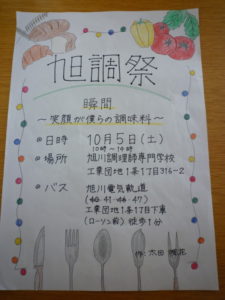 旭調祭
瞬間
～笑顔が僕らの調味料～
日時 10月5日(土)
10時～14時
場所 旭川調理師専門学校
工業団地1条1丁目316-2
バス 旭川電気軌道
(40・41・46・47)
工業団地1条1丁目下車
(ローソン前) 徒歩1分
作:太田